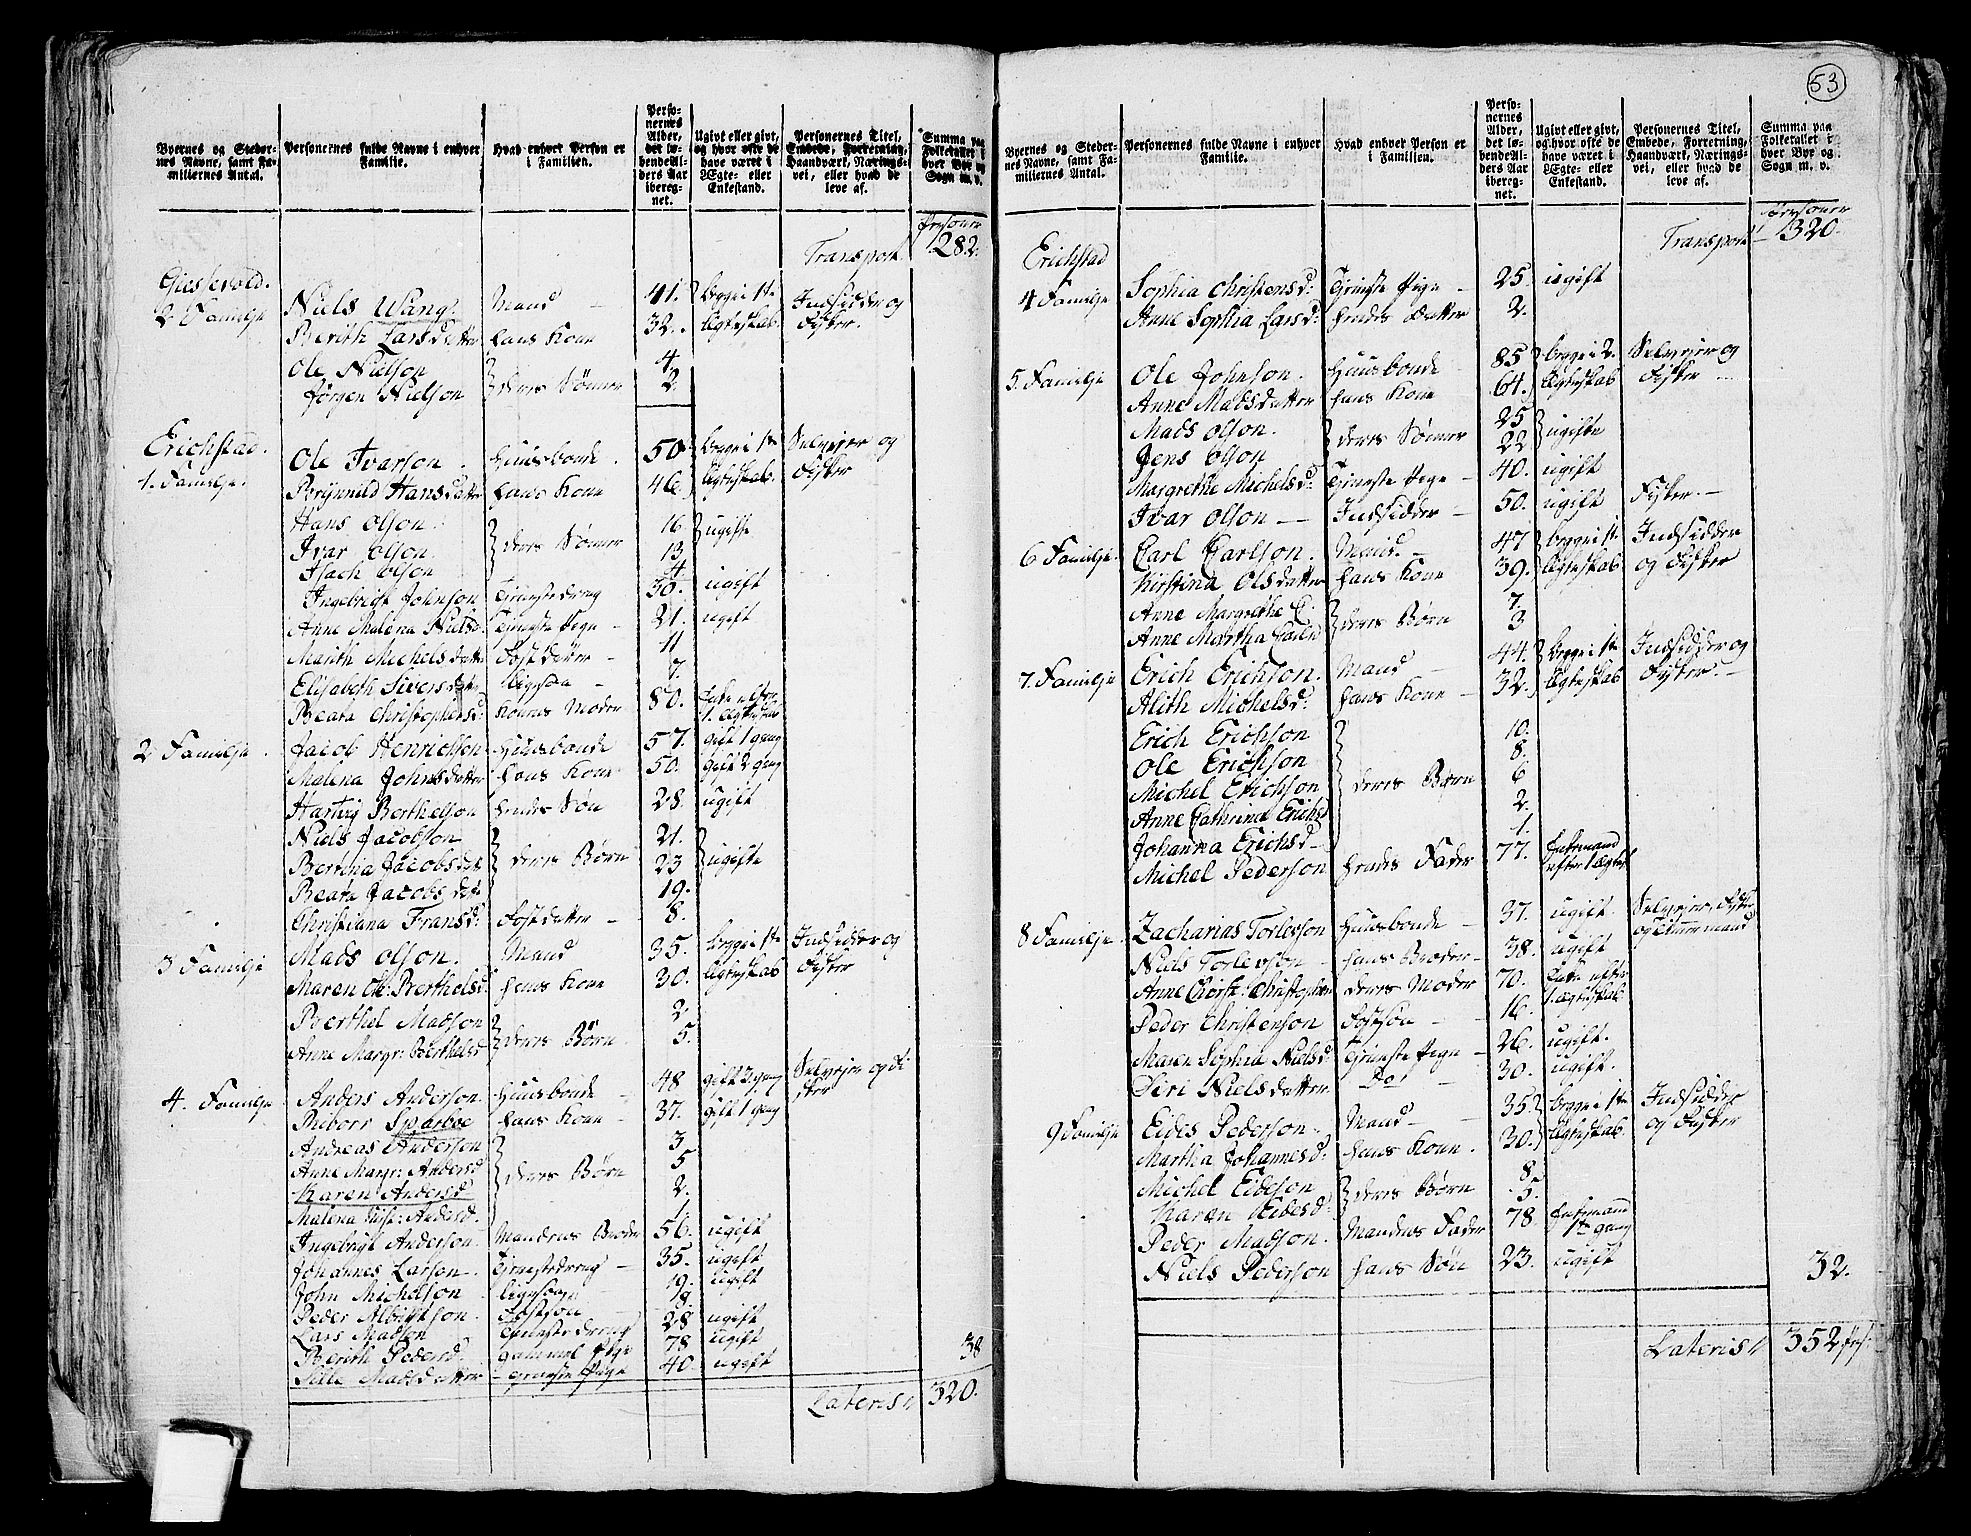 Byernes og Stedernes Navne, samt Familiernes Antal.
Personernes fulde Navne i enhver Familie.
Hvad enhver Person er i Familien.
Personernes Alder, det løbende Alders Aar iberegnet.
Ugivt eller givt, og hvor ofte de have været i Ægte- eller Enkestand.
Personernes Titel, Embede, Forretning, Haandværk, Næringsvei, eller hvad de leve af.
Summa paa Folketallet i hver Bye og Sogn m. v.
Transport Personer 282.
Giessevold.
2 Familje Niels Wang. Mand 41. begge i 1te Indsidder og
Berith Larsdatter hans Kone 32. Ægteskab. Fisker.
Ole Nielson 4
Jørgen Nielson deres Sønner 2
Erichstad.
1. Familje. Ole Ivarson Huusbonde 50 begge i 1te Selveier og
Brynnild Hansdatter hans Kone 46 Ægteskab. Fisker
Hans Olson 16 ugifte
Ivar Olson deres Sønner 13
Isach Olson 4
Ingebrigt Johnson Tjenestedreng 30. ugift
Anne Malena Nielsd. Tjeneste Pige 21. ugift
Marith Michelsdatter Fostdatter 11
Elisabeth Siversdatter ligesaa 7.
Beata Christophersd: Konens Moder 80. Enke efter 1. Ægteskab
2 Familje Jacob Henrichson Huusbonde 57. gift 1 gang
Malena Johnsdatter hans Kone 50. gift 2 gang
Hartvig Berthelson hendes Søn 28. ugift
Niels Jacobson 21.
Berthia Jacobsdatt deres Børn 23 ugifte
Beata Jacobsdatt 19.
Christiana Fransd: Fostdatter 8.
3 Familje Mads Olson. Mand 35. begge i 1te Indsidder og
Maren Ol: Berthelsd: hans Kone 30. Ægteskab Fisker
Berthel Madson 2
Anne Margr: Berthelsd deres Børn 5.
4. Familje Anders Anderson. Huusbonde 48 gift 3. gang Selveier og Fi
Riborr Sparboe hans Kone 37. gift 1 gang sker
Andreas Anderson 3
Anne Margr: Andersd deres Børn 5
Karen Andersd 2.
Malena Kirst: Andersd. 1.
Ingebrigt Anderson. Mandens Broder 56. ugift
Johannes Larson Tjenestedreng 35. ugift
John Michelson ligesaa 19. ugift
Peder Albrigtson. Fostsøn 8
Lars Madson Tjenestedreng 28 ugift
Berith Pedersd. gammel Pige 78 ugift
Sille Madsdatter Tjeneste Pige 40. ugift 38
Lateris 320.
53
Byernes og Stedernes Navne, samt Familiernes Antal.
Personernes fulde Navne i enhver Familie.
Hvad enhver Person er i Familien.
Personernes Alder, det løbende Alders Aar iberegnet.
Ugivt eller givt, og hvor ofte de have været i Ægte- eller Enkestand.
Personernes Titel, Embede, Forretning, Haandværk, Næringsvei, eller hvad de leve af.
Summa paa Folketallet i hver Bye og Sogn m. v.
Transport Personer 320.
Erichstad
4 Familje Sophia Christensd: Tjeneste Pige 25. ugift
Anne Sophia Larsd: hendes Datter 2.
5. Familje Ole Johnson. Huusbonde 85 begge i 2. Selveier og
Anne Madsdatter hans Kone 64. Ægteskab Fisker
Mads Olson. 25
Jens Olson deres Sønner 22 ugifte
Margrethe Michelsd: Tjeneste Pige 40. ugift
Ivar Olson Indsidder 50. ugift Fisker.
6 Familje Carl Carlson. Mand 47 begge i 1te Indsidder
Kirstina Olsdatter hans Kone 39. Ægteskab og Fisker
Anne Margrethe C. 7.
Anne Martha Carlsd deres Børn 3
7. Familje Erich Erichson. Mand 44. begge i 1te Indsidder og
Alith Michelsd: hans Kone 32. Ægteskab Fisker.
Erich Erichson 10.
Ole Erichson 8.
Michel Erichson deres Børn 6
Anne Cathrina Erichsd 2.
Johanna Erichsd 1.
Michel Pederson hendes Fader 77. Enkemand efter 1 Ægtes:
8 Familje Zacharias Torlevson Huusbonde 37. ugift. Selveier, Fisker
Niels Torlevson hans Broder 38. ugift og Tømmermand
Anne Chirst: Christophersd deres Moder 70. Enke efter 1. Ægteskab
Peder Christenson Fostsøn 16.
Maren Sophia Nielsd. Tjeneste Pige 26. ugift.
Siri Nielsdatter Do 30. ugift.
9 Familje Eides Pederson. Mand 35 begge i 1te Indsidder
Martha Johannesd: hans Kone. 30. Ægteskab og Fisker
Michel Eideson 8
Karen Eidesd: deres Børn 5.
Peder Madson. Mandens Fader 78 Enkemand 1te gang
Niels Pederson hans Søn 23. ugift 32.
Lateris 352 Pers: